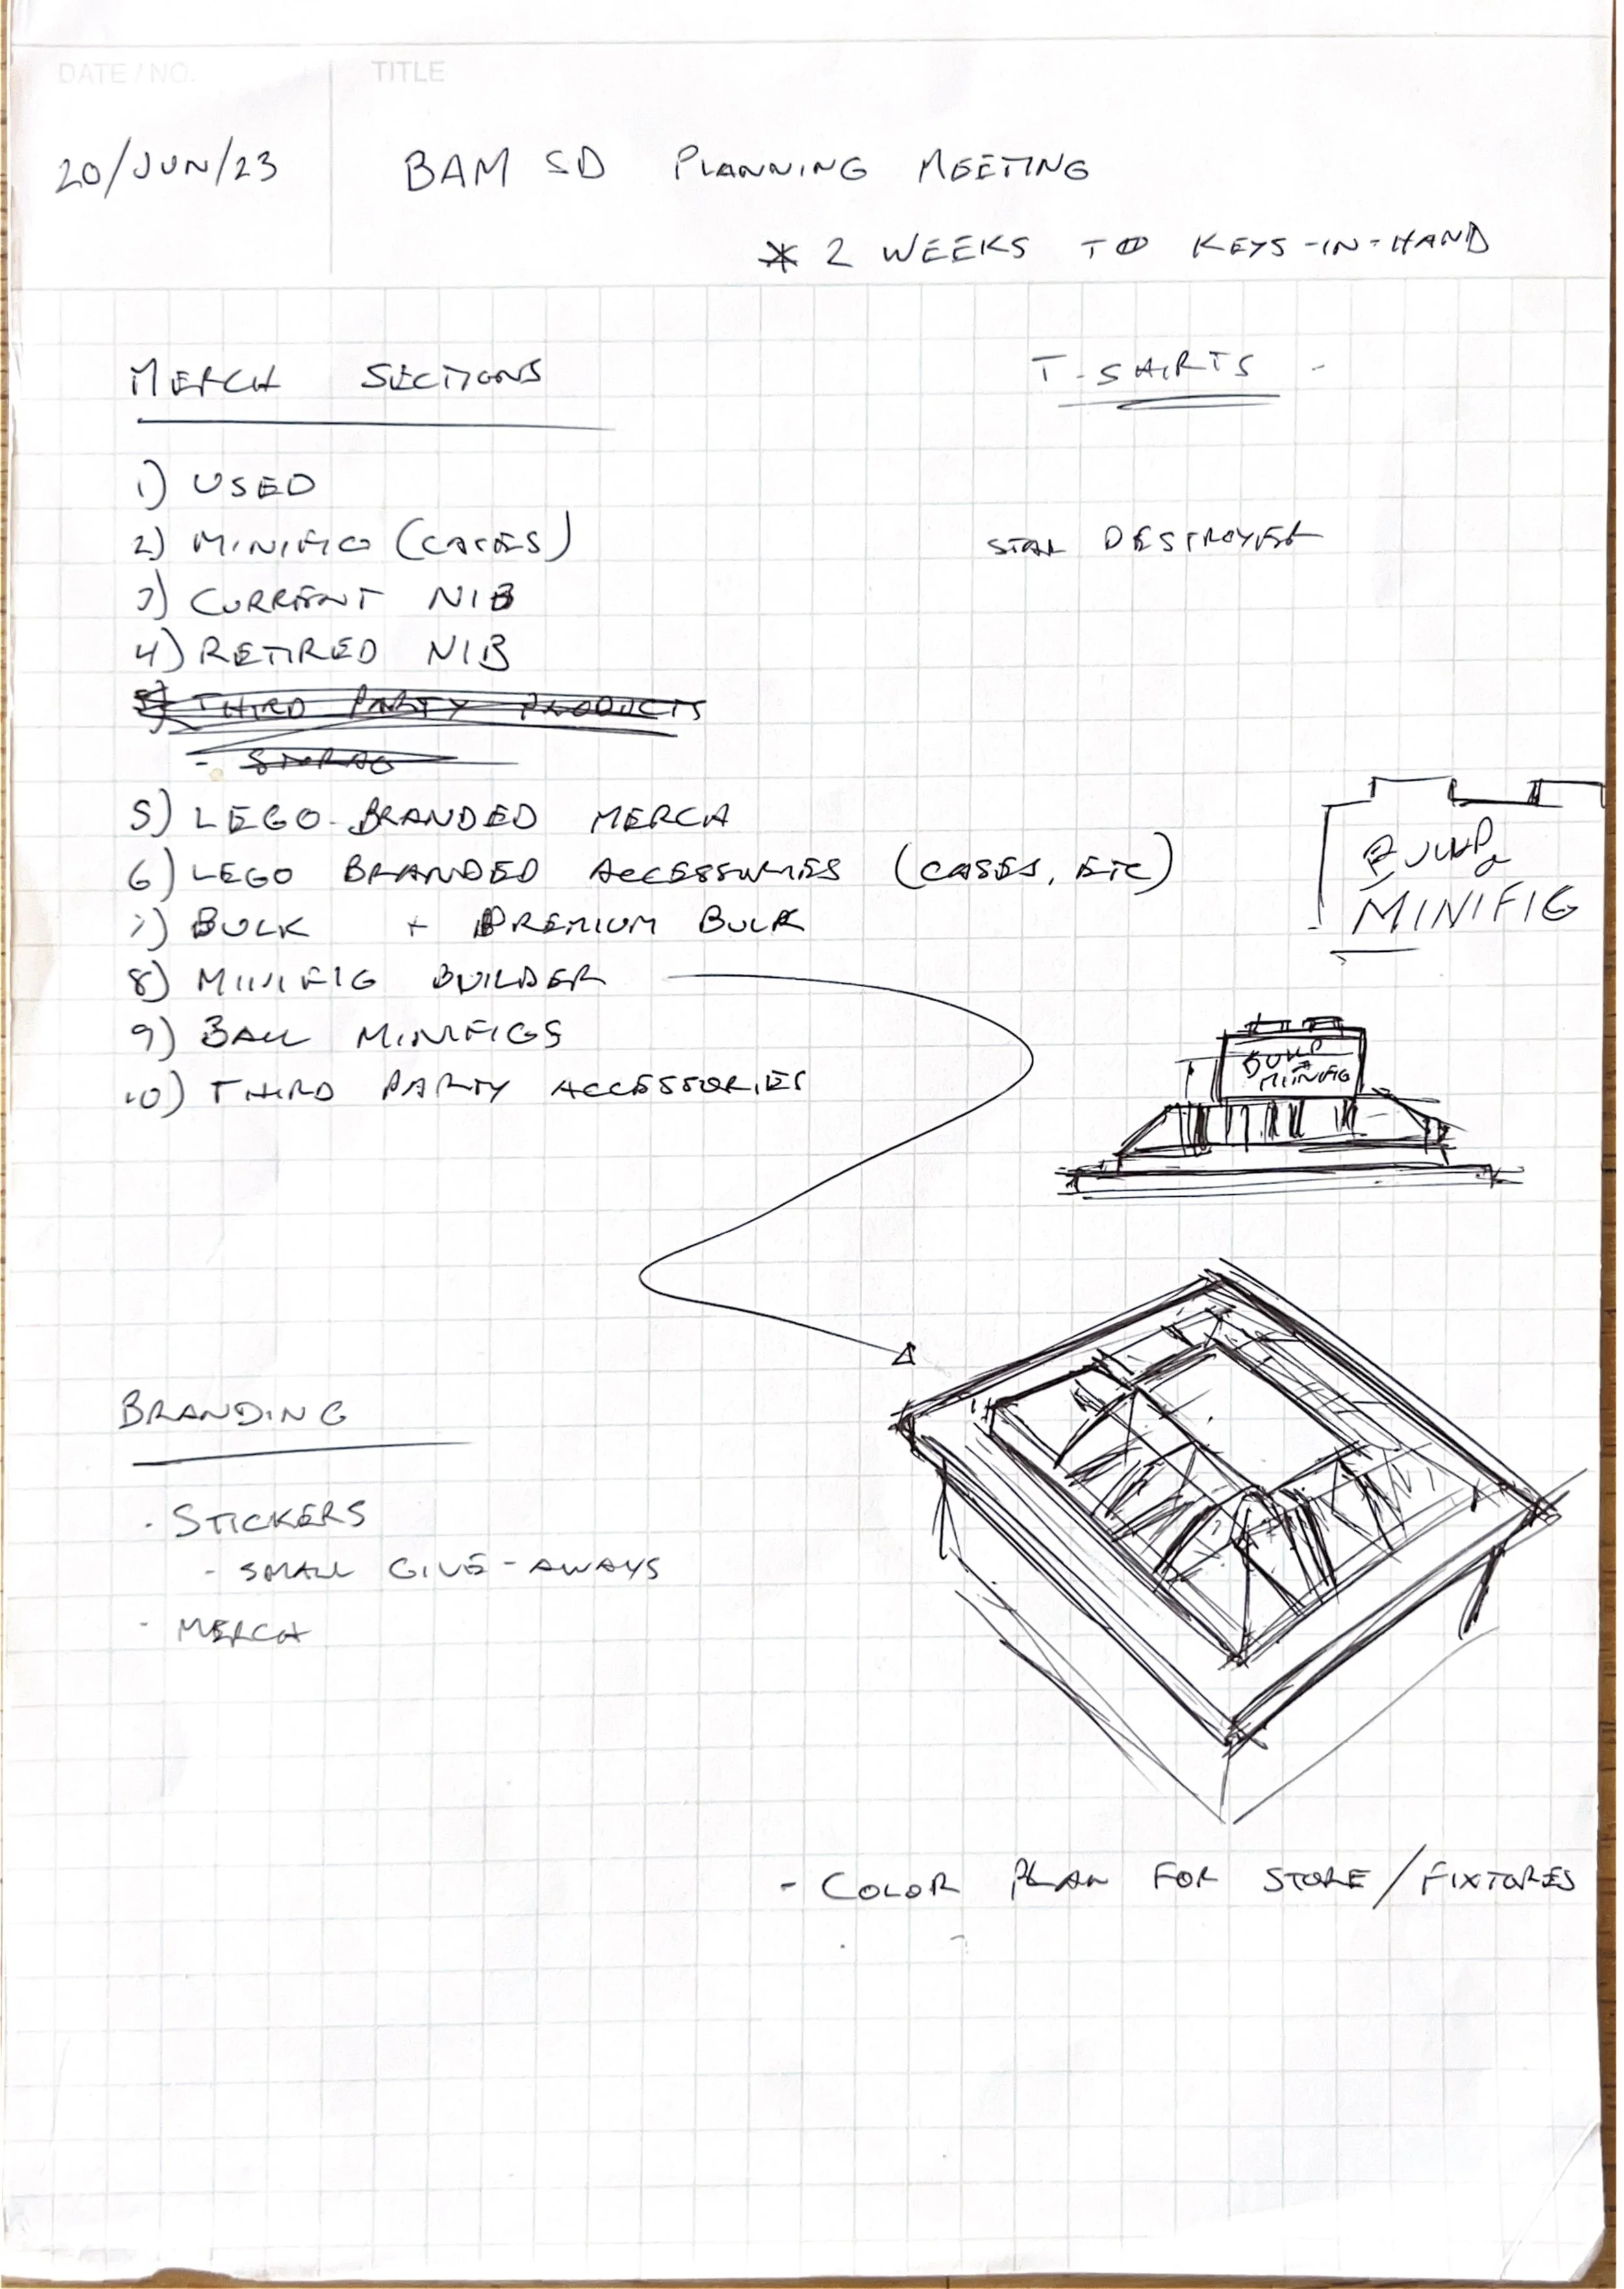 DATE / NO.
TITLE
20/JUN/23
BAM SD PLANNING MEETING
* 2 WEEKS TO KEYS-IN-HAND
MERCH SECTIONS
1) USED
2) MINIFIG (CASES)
3) CURRENT NIB
4) RETIRED NIB
5) THIRD PARTY PRODUCTS
- STORAG
5) LEGO-BRANDED MERCH
6) LEGO BRANDED ACCESSORIES (CASES, ETC)
7) BULK + PREMIUM BULK
8) MINIFIG BUILDER
9) BAM MINIFIGS
10) THIRD PARTY ACCESSORIES
T-SHIRTS -
STAR DESTROYER
BUILD a
MINIFIG
BUILD
A
MINIFIG
BRANDING
· STICKERS
- SMALL GIVE-AWAYS
- MERCH
- COLOR PLAN FOR STORE/FIXTURES